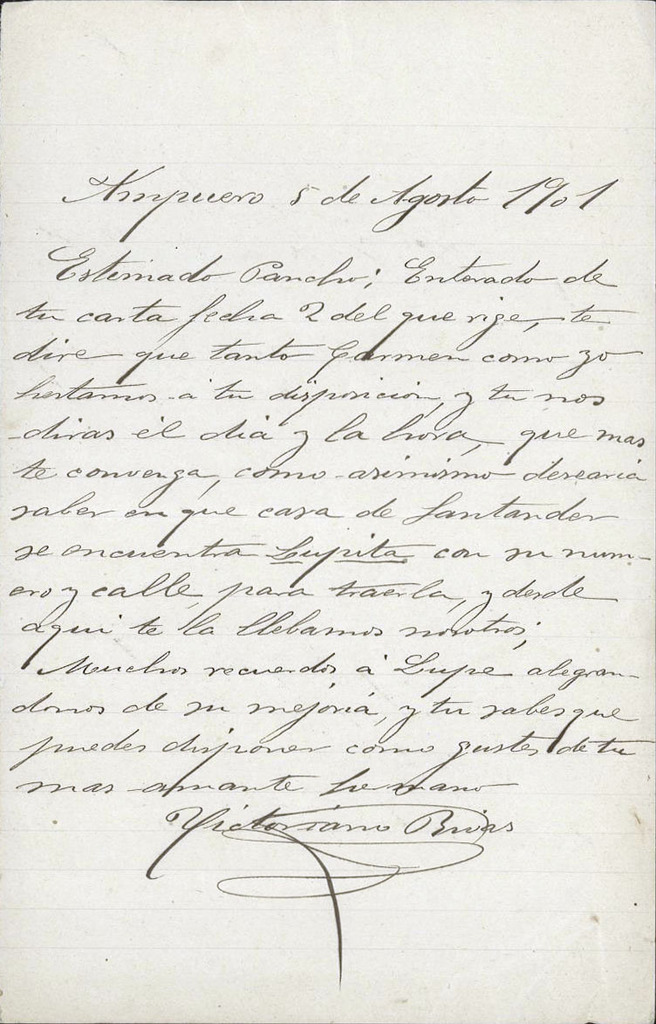 Ampuero 5 de Agosto 1901
Estimado Pancho; Enterado de
tu carta fecha 2 del que rige, te
dire que tanto Carmen como yo
hestamos á tu disposicion, y tu nos
diras el dia y la hora, que mas
te convenga, como asimismo desearia
saber en que casa de Santander
se encuentra Lupita con su num-
ero y calle, para traerla, y desde
aqui te la llebamos nosotros;
Muchos recuerdos á Lupe alegran-
donos de su mejoria, y tu sabes que
puedes disponer como gustes de tu
mas amante hermano
Victoriano Rivas